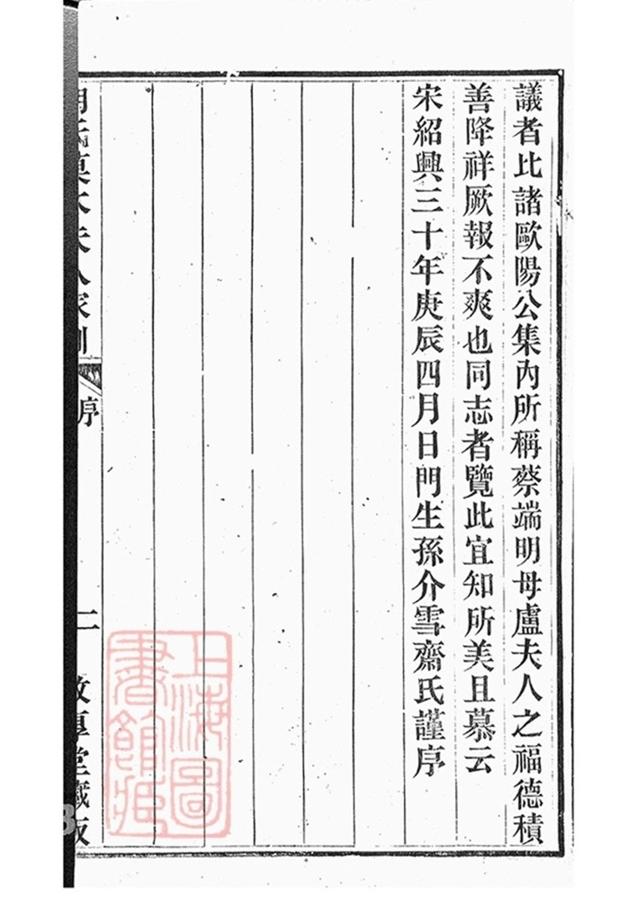 議者比諸歐陽公集內所稱蔡端明母盧夫人之福德積
善降祥厥報不爽也同志者覽此宜知所美且慕云
宋紹興三十年庚辰四月日門生孫介雪齋氏謹序
序
二
堂藏板
上海圖
書館藏